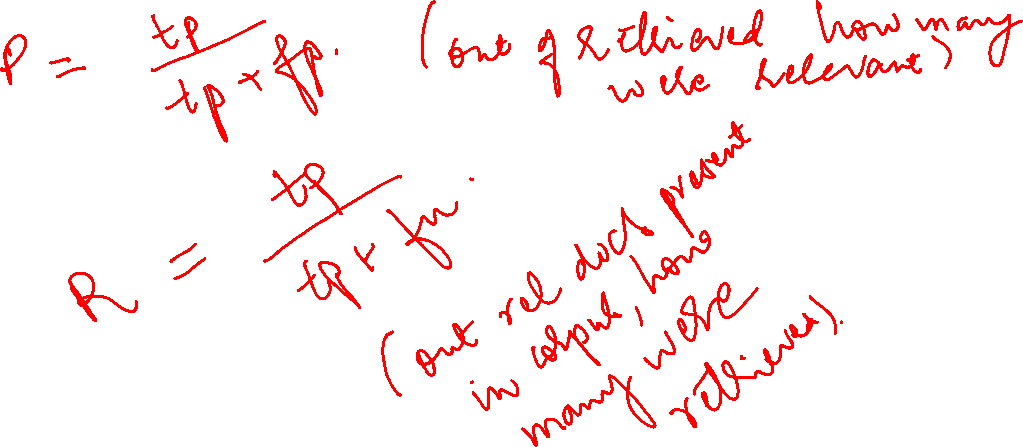 P = tp / tp + fp. (out of retrieved how many
were relevant)
R = tp / tp + fn.
(out rel docs present
in corpus, how
many were
retrieved).